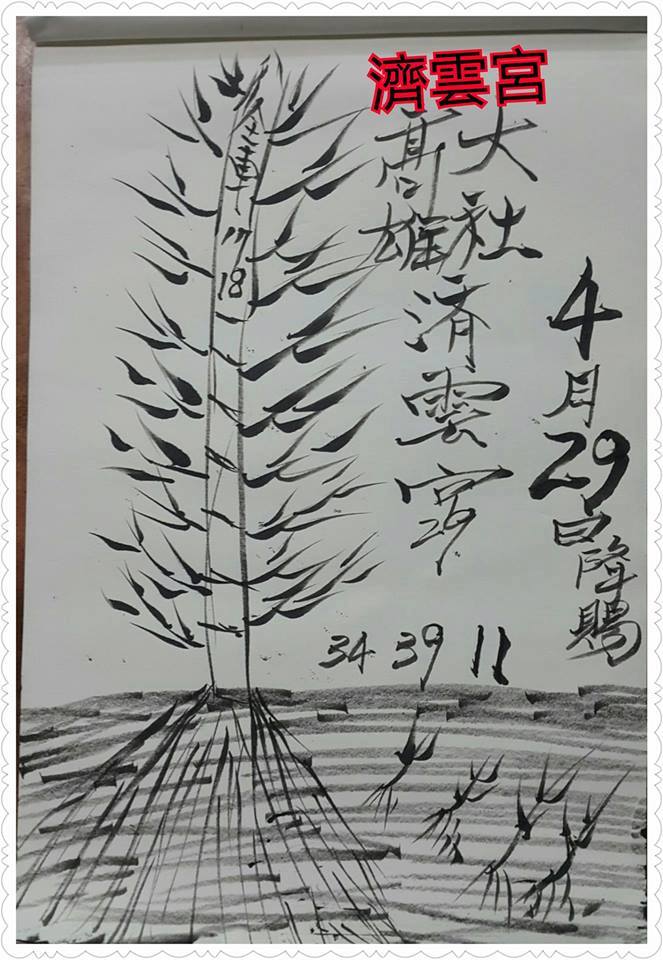 濟雲宮
大社
高雄
済雲宮
4月29日降賜
全車
17
18
34 39 11